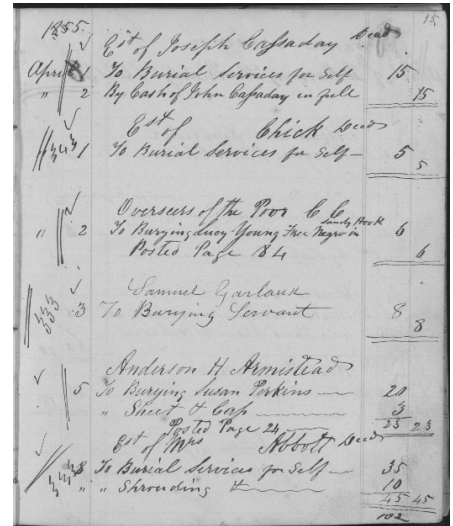 15
1855. Est of Joseph Cassaday Decd
April 1 To Burial Services for Self 15
" 2 By Cash of John Cassaday in full 15
Est of Chick Decd
1 To Burial Services for Self 5
5
Overseers of the Poor C C
" 2 To Burying Lucy Young Free Negro in Sandy Hook 6
Posted Page 184 6
Samuel Garland
333 3 To Burying Servant 8
8
Anderson H Armistead
5 To Burying Susan Perkins 20
" Sheet & Cap 3
Posted Page 24 23 23
Est of Mrs Abbott Decd
8 To Burial Services for Self 35
" " Shrouding & 10
45 45
102